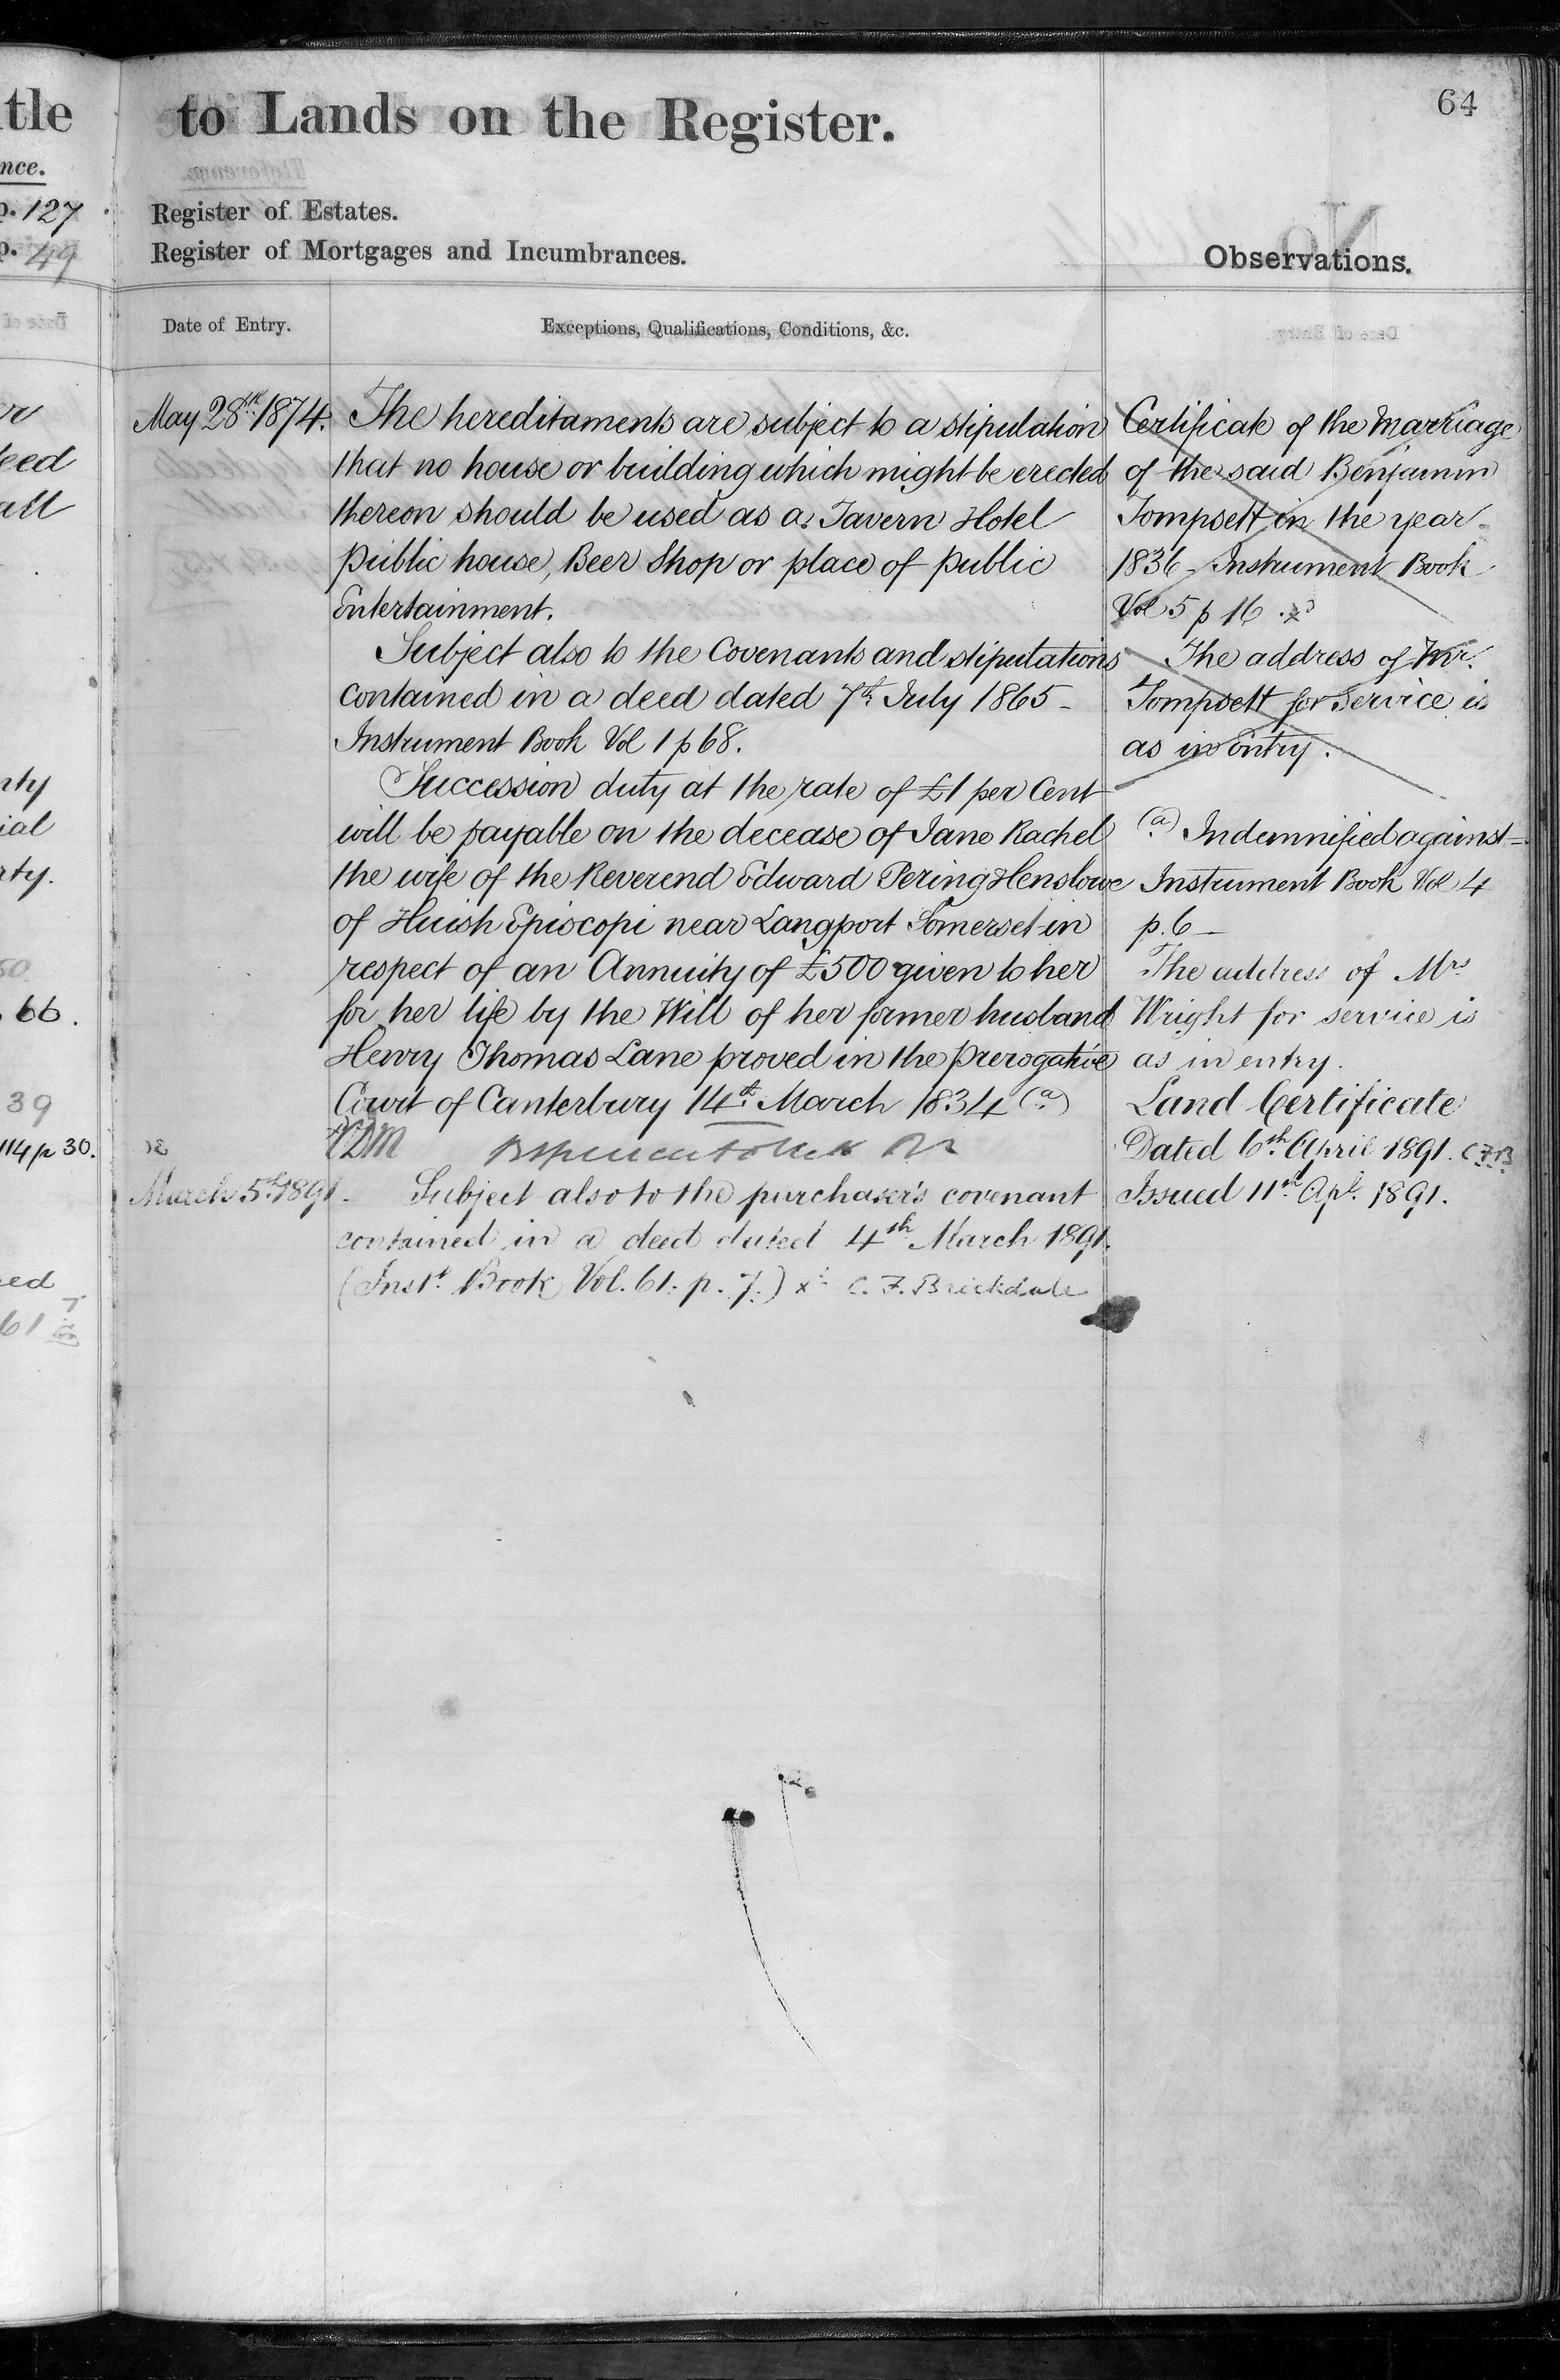 64
to Lands on the Register.
Register of Estates.
Register of Mortgages and Incumbrances.
Observations.
Date of Entry.
Exceptions, Qualifications, Conditions, &c.
May 28th 1874.
The hereditaments are subject to a stipulation
that no house or building which might be erected
thereon should be used as a Tavern Hotel
Public house, Beer Shop or place of public
Entertainment.
Subject also to the Covenants and stipulations
contained in a deed dated 7th July 1865 -
Instrument Book Vol 1 p 68.
Succession duty at the rate of £1 per Cent
will be payable on the decease of Jane Rachel
the wife of the Reverend Edward Pering Henslowe
of Huish Episcopi near Langport Somerset in
respect of an Annuity of £500 given to her
for her life by the Will of her former husband
Henry Thomas Lane proved in the Prerogative
Court of Canterbury 14th March 1834 (a)
March 5th 1891.
Subject also to the purchaser's covenant
contained in a deed dated 4th March 1891.
(Inst. Book Vol. 61. p. 7.) x C. F. Brickdale
Certificate of the Marriage
of the said Benjamin
Tompsett in the year
1836 - Instrument Book
Vol 5 p 16
The address of Mr.
Tompsett for Service is
as in Entry.
(a) Indemnified against -
Instrument Book Vol 4
p. 6 -
The address of Mrs
Wright for service is
as in entry.
Land Certificate
Dated 6th April 1891. C.F.B.
Issued 11th Apl. 1891.
tle
nce.
p. 127
p. 49
eed
rty.
66.
39
114 p 30.
61